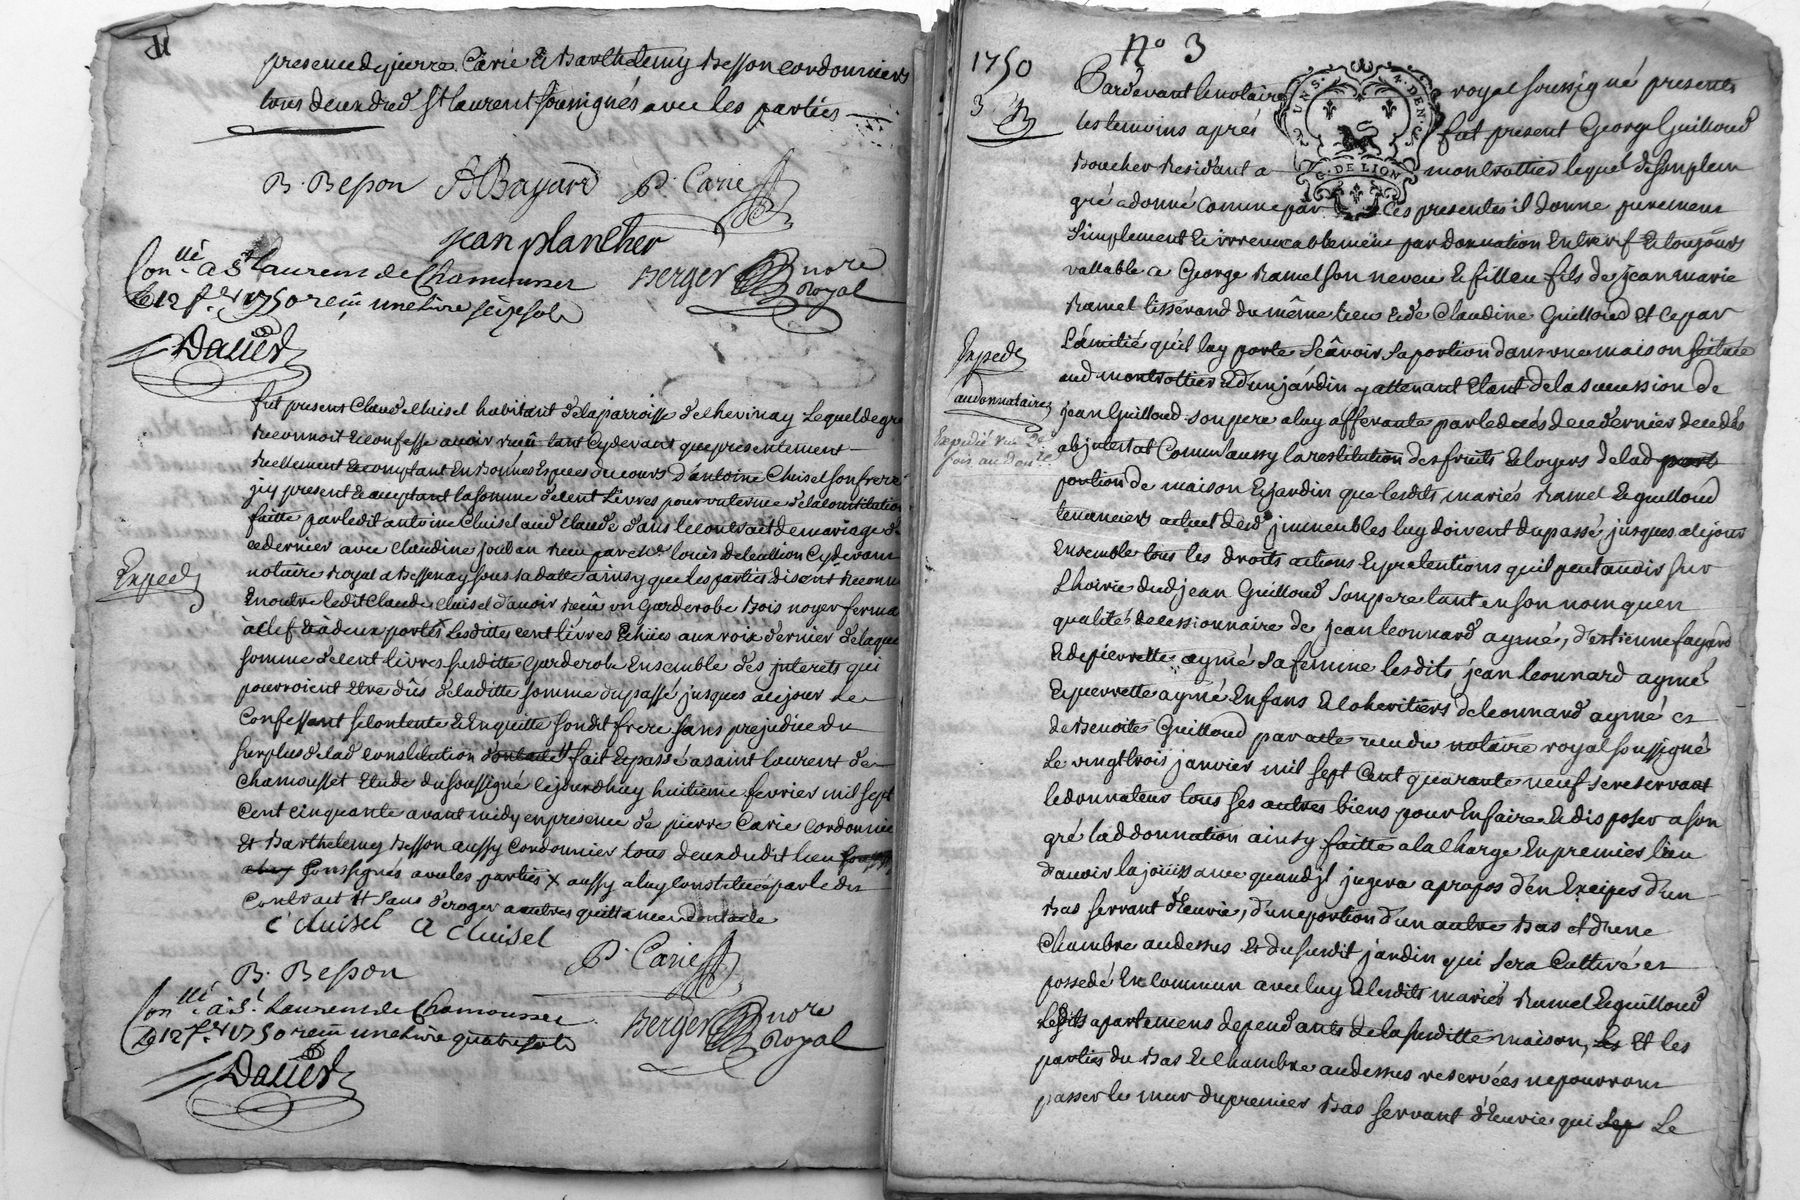 presence de pierre Carie & Barthelemy Besson cordonniers
tous deux dud St laurent soussignés avec les parties
B. Besson ABayard P. Carie
jean plancher
Con.lle a St Laurent de Chamousset Berger nore
Le 12 f.er 1750 reçu une livre seize sols Royal
Dauer
fut present Claude Cluisel habitant de la parroisse de Chevinay Lequel de gré
Reconnoit & confesse avoir reçu tant cydevant que presentement
Reellement & comptant En Bonnes Especes du cours D'antoine Cluisel son frere
jcy present & acceptant la somme de cent Livres pour un terme de la constitution
faitte par ledit antoine Cluisel aud Claude dans le contract de mariage de
ce dernier avec Claudine jouban reçu par Me louis cydevant
notaire Royal a Bessenay sous sa datte ainsy que les parties disent Reconnu
Expedé
En outre ledit Claude Cluisel d'avoir reçu un garderobe Bois noyer fermant
à clef & à deux portes Lesdittes cent livres Echües aux rois dernier de laquelle
somme de cent livres susditte garderobe Ensemble des jnterets qui
pourroient Etre dûs de laditte somme du passé jusques a ce jour se
Confessant se contente & En quitte sondit frere sans prejudice du
surplus de lad constitution dontacte # fait & passé a saint laurent de
Chamousset Etude du soussigné cejourdhuy huitieme fevrier mil sept
Cent cinquante avant midy en presence de pierre Carie cordonnier
Et Barthelemy Besson aussy Cordonnier tous deux dudit lieu
soussignés avec les parties x aussy a luy constituée par le dit
Contract # sans deroger a autres quittances dontacte
C Cluisel A Cluisel
B. Besson P. Carie
Con.lle à St Laurent de Chamousset Berger nore
Le 12 f.er 1750 reçu une livre quatre sols Royal
Dauer
No 3
1750
3
GNS. 4. DEN.
G. DE LION
Pardevant le notaire royal soussigné presents
les temoins aprés fut present George Guilloud
Boucher Residant a montrottier lequel de son plein
gré a donné comme par Ces presentes il donne purement
simplement & irrevocablement par donnation Entre vif & toujours
vallable a George Ramel son neveu & filleu fils de jean marie
Ramel tisserand du même lieu & de Claudine Guilloud et ce par
L'amitié qu'il luy porte Sçâvoir sa portion dans une maison scituée
Expedé
aud montrottier & d'un jardin y attenant Etant de la succession de
au donnataire
jean Guilloud son pere a luy afferante par le decés de ce dernier decedés
Expedié une 2e
fois au don.re
ab jntestat Comm'aussy la restitution des fruits & loyers de lad part
portion de maison & jardin que lesdits mariés Ramel & guilloud
tenanciers actuel desd jmmeubles luy doivent du passé jusques a ce jour
Ensemble tous les droits actions & pretentions qu'il peut avoir sur
L'hoirie dud jean Guilloud son pere tant en son nom qu'en
qualité de cessionnaire de jean leonnard aymé, d'estienne fayard
& de pierrette aymé sa femme lesdits jean leonnard aymé
& pierrette aymé Enfans & coheritiers de leonnard aymé et
de Benoite Guilloud par acte reçu du notaire royal soussigné
Le vingt trois janvier mil sept Cent quarante neuf se reservant
le donnateur tous ses autres biens pour En faire & disposer a son
gré lad donnation ainsy faitte a la charge En premier lieu
d'avoir la jouissance quand jl jugera apropos d'en Exciper d'un
Bas servant d'Ecurie, d'une portion d'un autre Bas et d'une
Chambre audessus Et du susdit jardin qui sera Cultivé et
possedé En commun avec luy & lesdits mariés Ramel & guilloud
Lesdits apartemens dependants de la susditte maison, Les Et les
parties du Bas & chambre audessus reservées ne pourront
passer le mur du premier Bas servant d'Ecurie qui sep Le